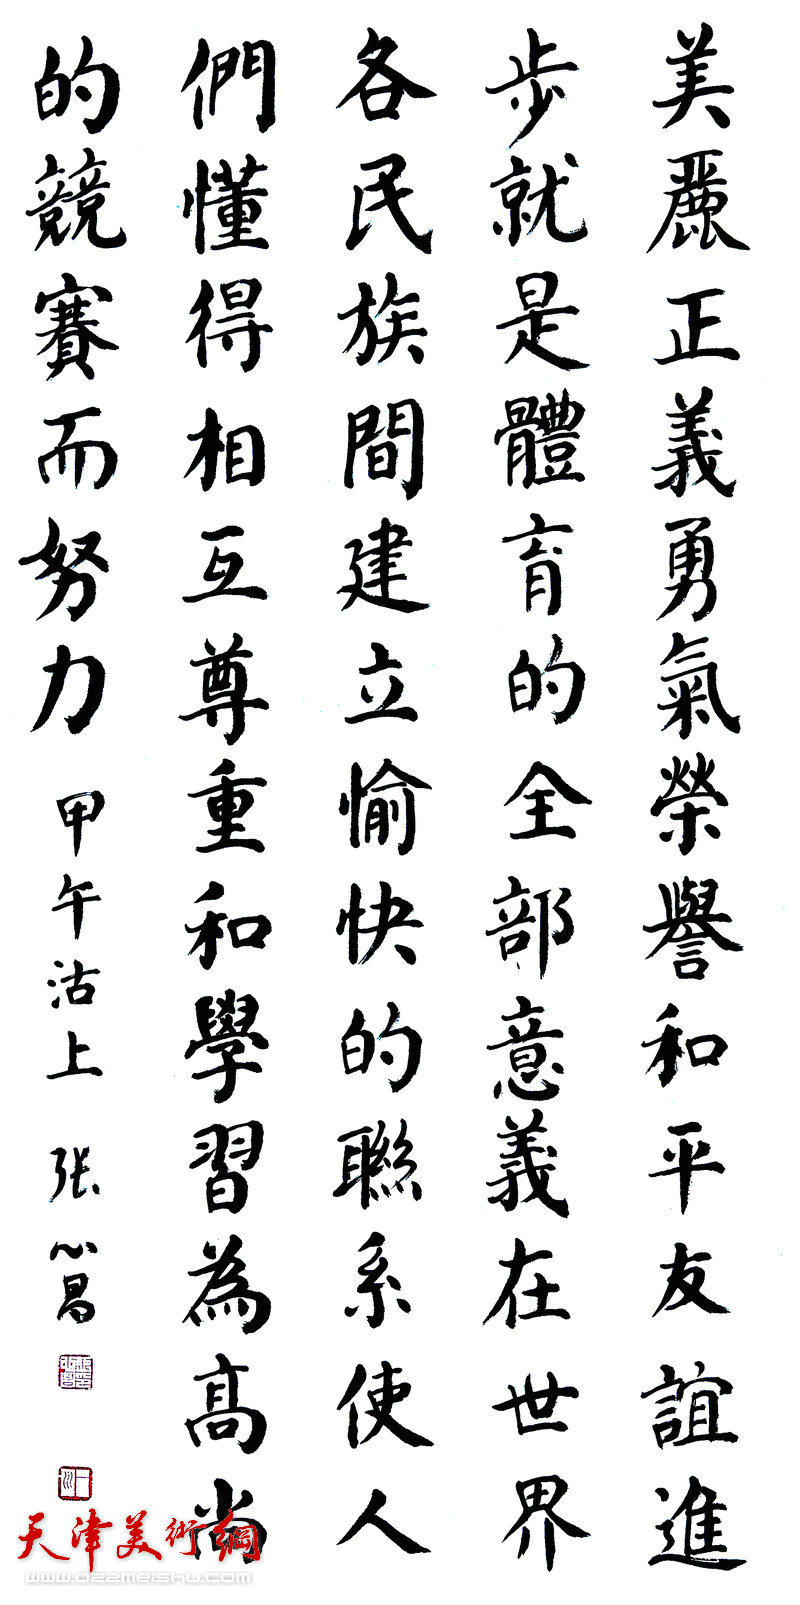 美麗正義勇氣榮譽和平友誼進
步就是體育的全部意義在世界
各民族間建立愉快的聯系使人
們懂得相互尊重和學習為高尚
的競賽而努力
甲午沽上 张心昌
天津美術網
www.022meishu.com